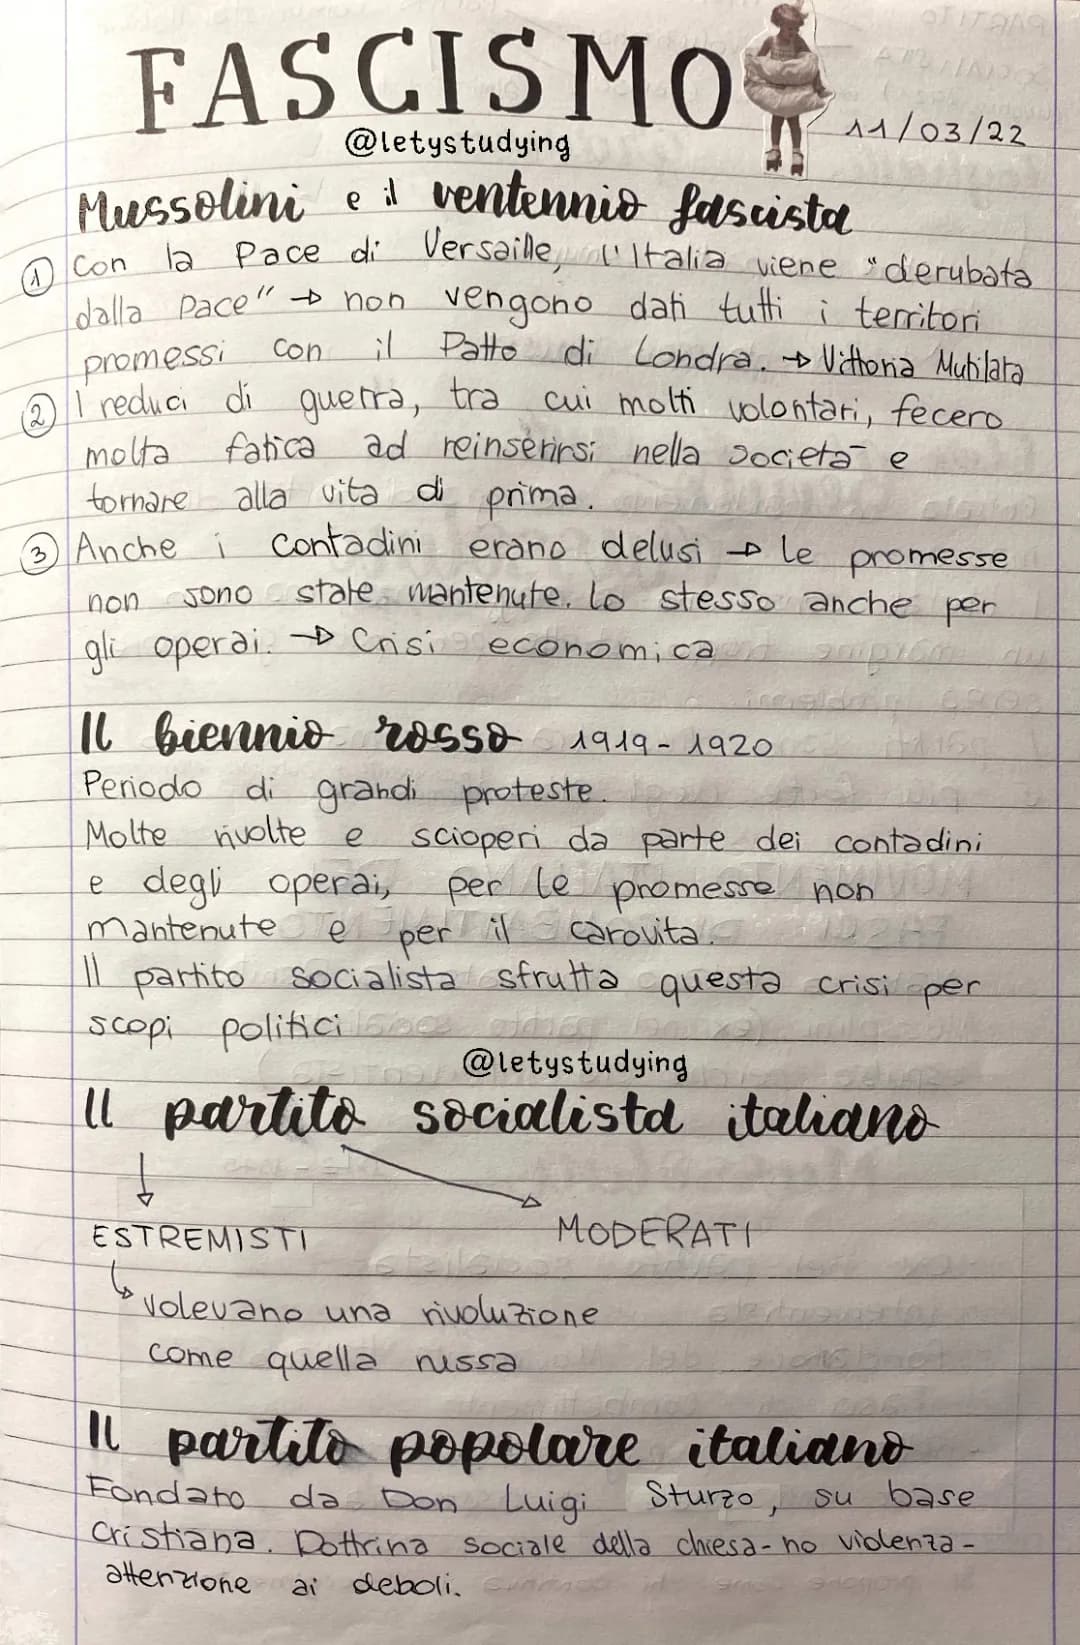 FASCISMO
@letystudying
11/03/22
Mussolini e il ventennio fascista
1 Con la Pace di Versaille, l'Italia viene "derubata
dalla Pace" → non vengono dati tutti i territori
promessi con il Patto di Londra. → Vittoria Mutilata
2 I reduci di guerra, tra cui molti volontari, fecero
molta fatica ad reinserirsi nella società e
tornare alla vita di prima.
3 Anche i contadini erano delusi → le promesse
non sono state mantenute. Lo stesso anche per
gli operai. → Crisi economica
Il biennio rosso 1919-1920
Periodo di grandi proteste.
Molte rivolte e scioperi da parte dei contadini
e degli operai, per le promesse non
mantenute e per il carovita.
Il partito socialista sfrutta questa crisi per
scopi politici
@letystudying
Il partito socialista italiano
ESTREMISTI
MODERATI
volevano una rivoluzione
come quella russa
Il partito popolare italiano
Fondato da Don Luigi Sturzo, su base
Cristiana. Dottrina sociale della chiesa - no violenza -
attenzione ai deboli.